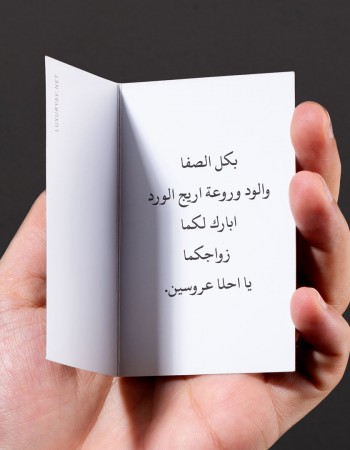 بكل الصفا
والود وروعة اريج الورد
ابارك لكما
زواجكما
يا احلا عروسين.
LUXURYAY.NET